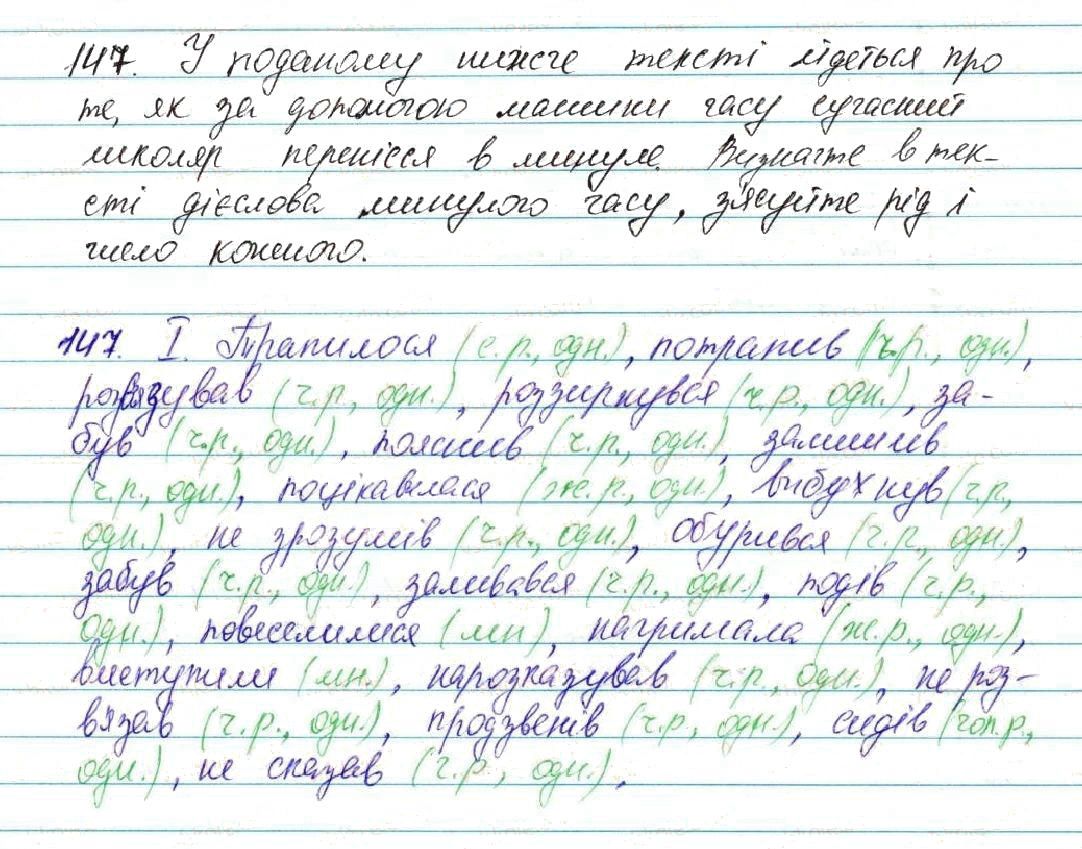 147. У поданому нижче тексті йдеться про
те, як за допомогою машини часу сучасний
школяр перенісся в минуле. Визначте в тек-
сті дієслова минулого часу, з'ясуйте рід і
число кожного.
147. І. Трапилося (с.р., одн.), потрапив (ч.р., одн.),
розв'язував (ч.р., одн.), роззирнувся (ч.р., одн.), за-
був (ч.р., одн.), пояснив (ч.р., одн.), залишив
(ч.р., одн.), поцікавилася (ж.р., одн.), вибухнув (ч.р.,
одн.), не зрозумів (ч.р., одн.), обурився (ч.р., одн.),
забув (ч.р., одн.), заливався (ч.р., одн.), подів (ч.р.,
одн.), повеселилися (мн), нагримала (ж.р., одн.),
виступили (мн.), нарозказував (ч.р., одн.), не роз-
в'язав (ч.р., одн.), продзвенів (ч.р., одн.), сидів (чол.р.,
одн.), не сказав (ч.р., одн.).